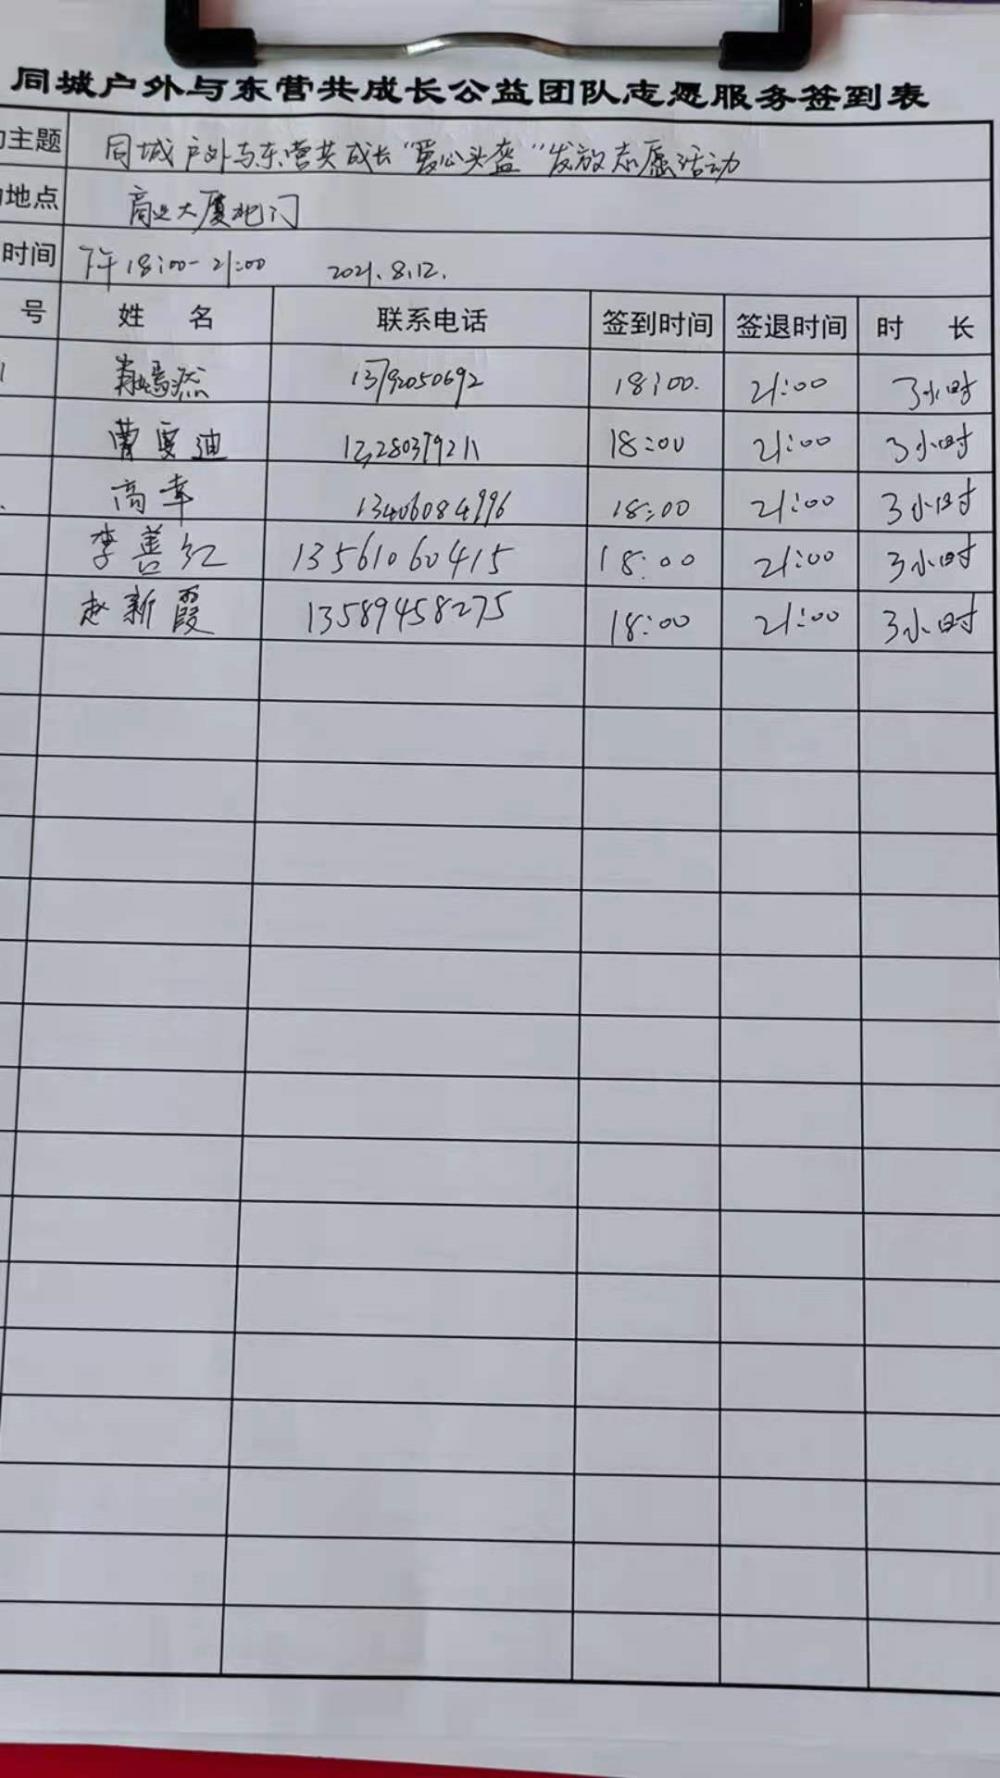 同城户外与东营共成长公益团队志愿服务签到表
主题 同城户外与东营共成长“爱心头盔”发放志愿活动
地点 商业大厦北门
时间 下午18:00-21:00 2021.8.12.
号 姓 名 联系电话 签到时间 签退时间 时 长
1 嫣然 13792050692 18:00. 21:00 3小时
曹更迪 21:00 18:00 3小时
高幸 13406084996 18:00 21:00 3小时
李善红 13561060415 18:00 21:00 3小时
赵新霞 13589458275 18:00 21:00 3小时